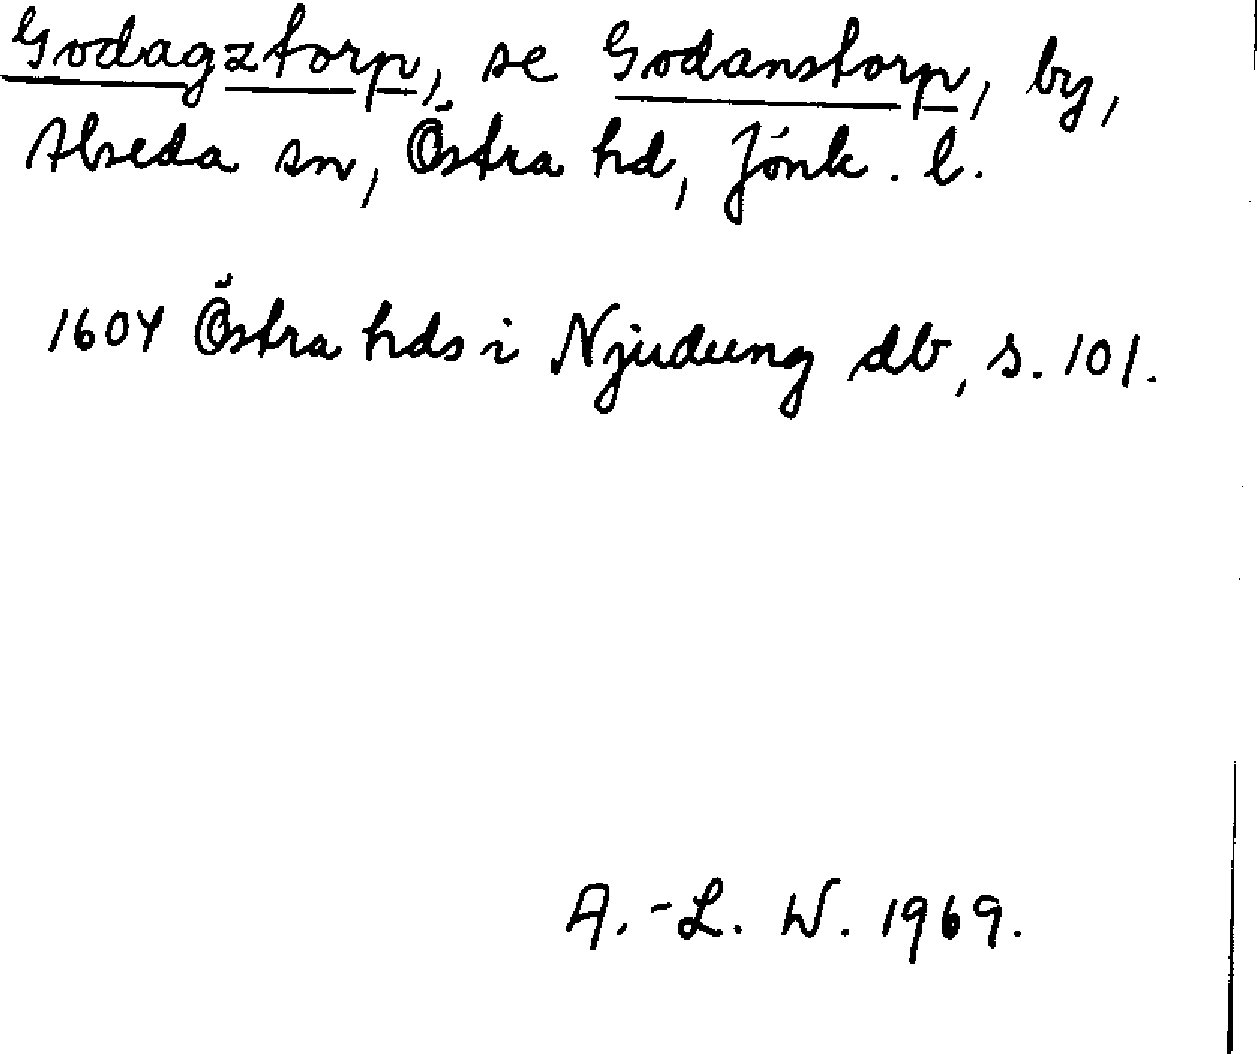 Godagztorp, se Godanstorp, by,
Alseda sn, Östra hd, Jönk. l.
1604 Östra hds i Njudung db, s. 101.
A.-L. W. 1969.